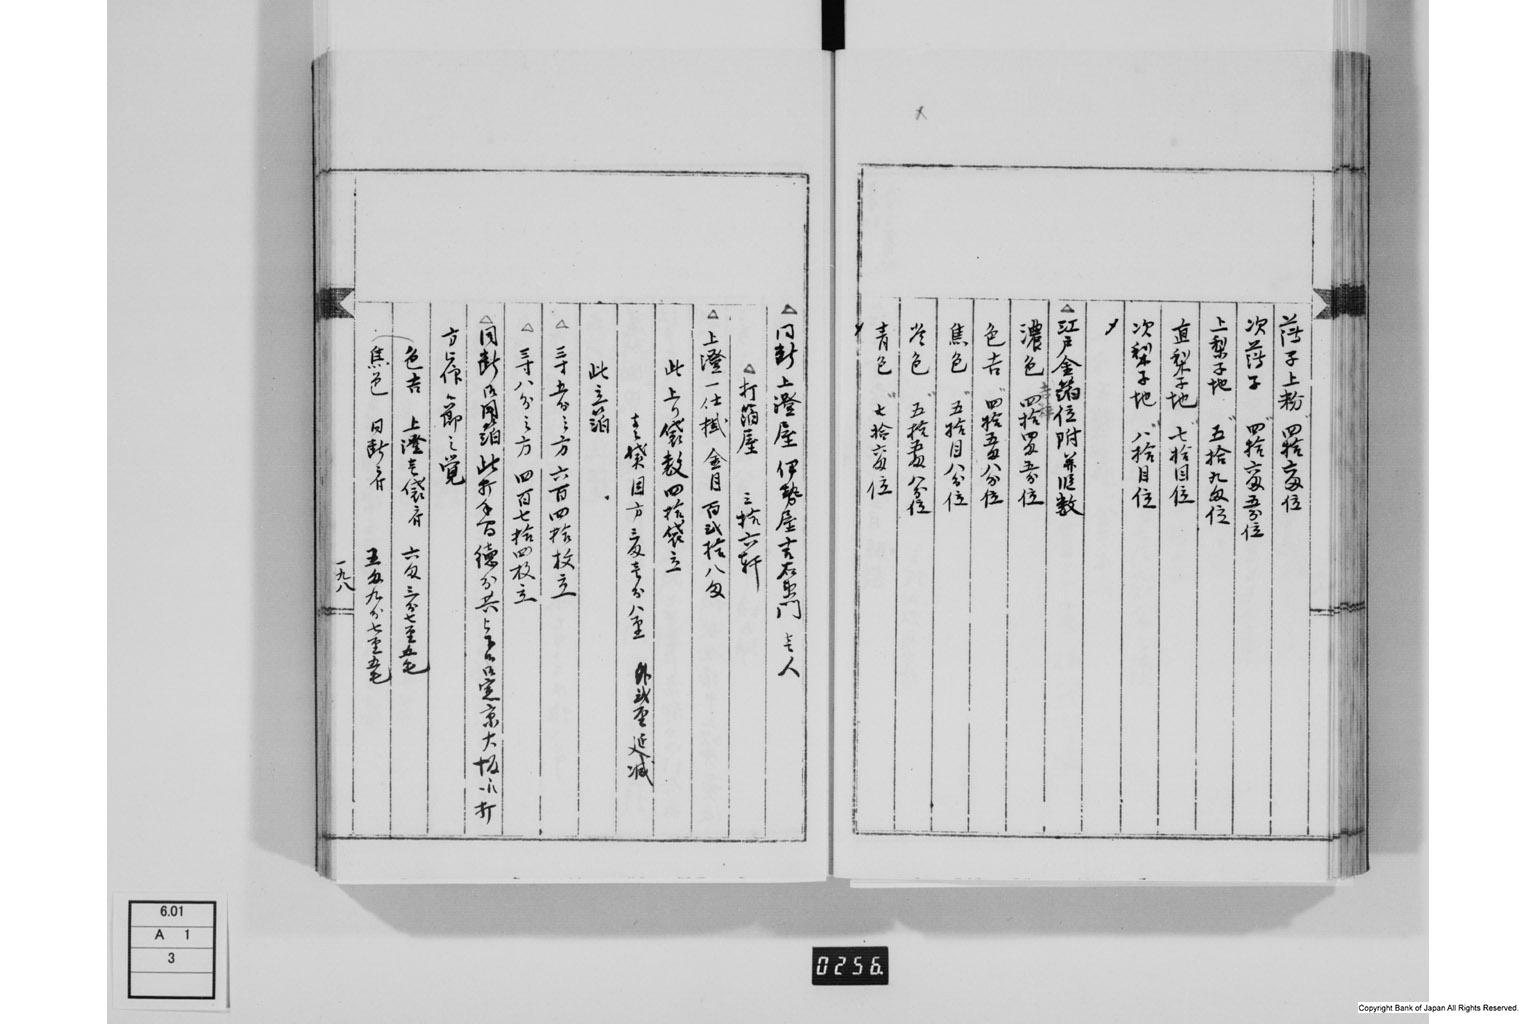 蒔子上粉 四拾六匁位
次蒔子 四拾六匁五分位
上梨子地 五拾九匁位
直梨子地 七拾目位
次梨子地 八拾目位
〆
△江戸金箔位附并限数
濃色 四拾四匁五分位
色吉 四拾五匁八分位
焦色 五拾目八分位
五拾五匁八分位
青色 七拾六匁位
△同断上澄屋 伊勢屋吉右衛門 壱人
△打箔屋 三拾六軒
△上澄一仕掛 金目 百弐拾八匁
此上り袋数四拾袋立
壱袋目方三匁壱分八厘 外弐厘延減
此立箔
△三寸五分之方 六百四拾枚立
△三寸八分之方 四百七拾四枚立
△同断
方 節之覚
色吉 上澄壱袋ニ付 六匁三分七厘五毛
焦色 同断ニ付 五匁九分七厘五毛
一九八
6.01
A 1
3
0256.
Copyright Bank of Japan All Rights Reserved.